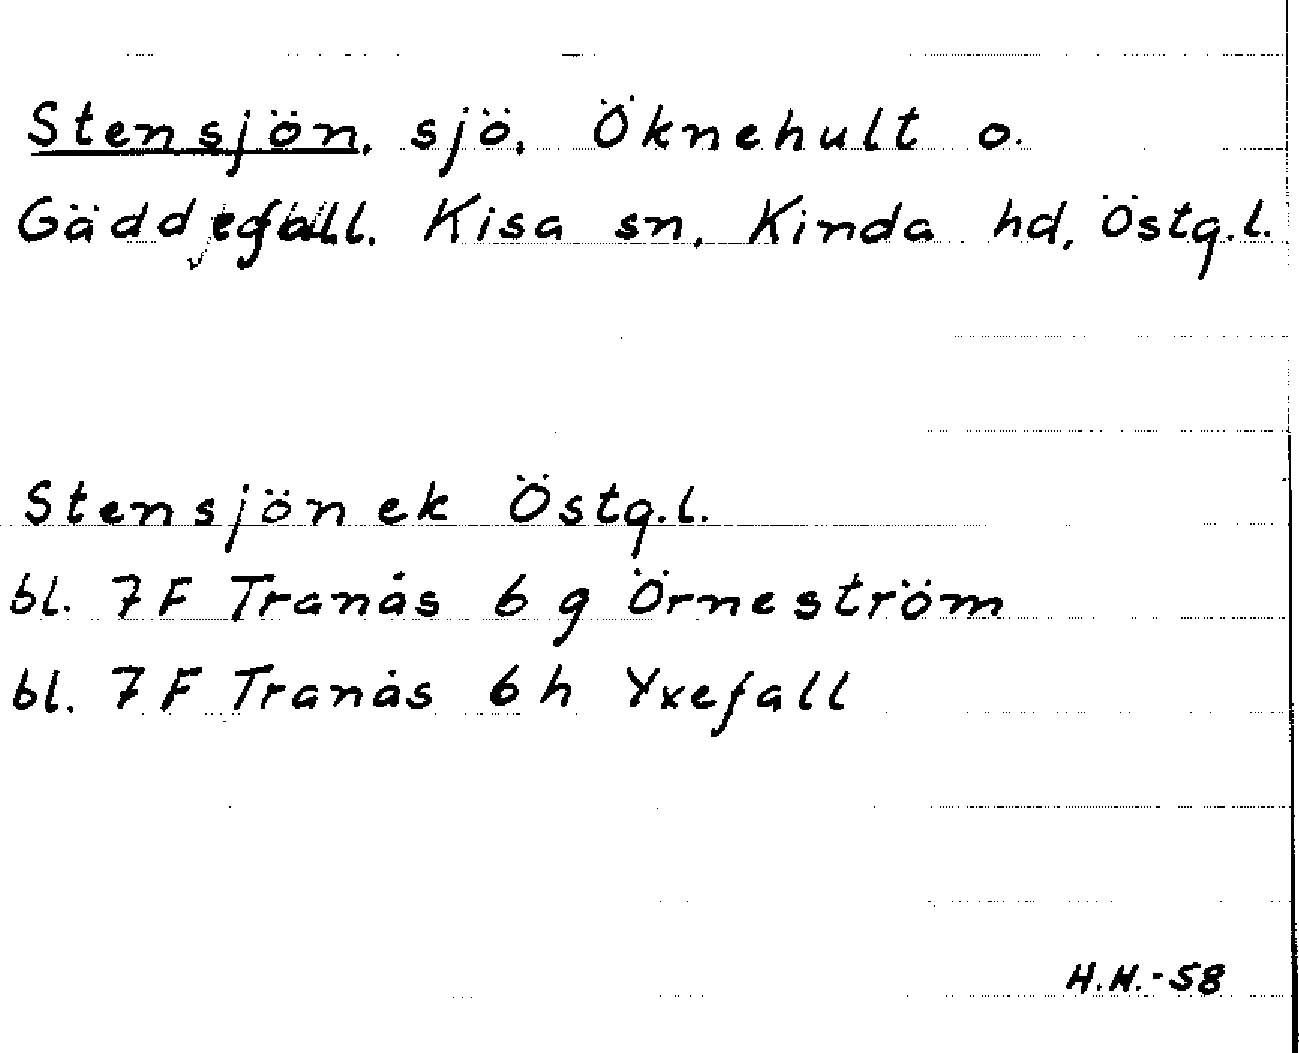 Stensjön, sjö, Öknehult o.
Gäddefall. Kisa sn, Kinda hd, Östg.l.
Stensjön ek Östg.l.
bl. 7F Tranås 6g Örneström
bl. 7F Tranås 6h Yxefall
H.H.-58